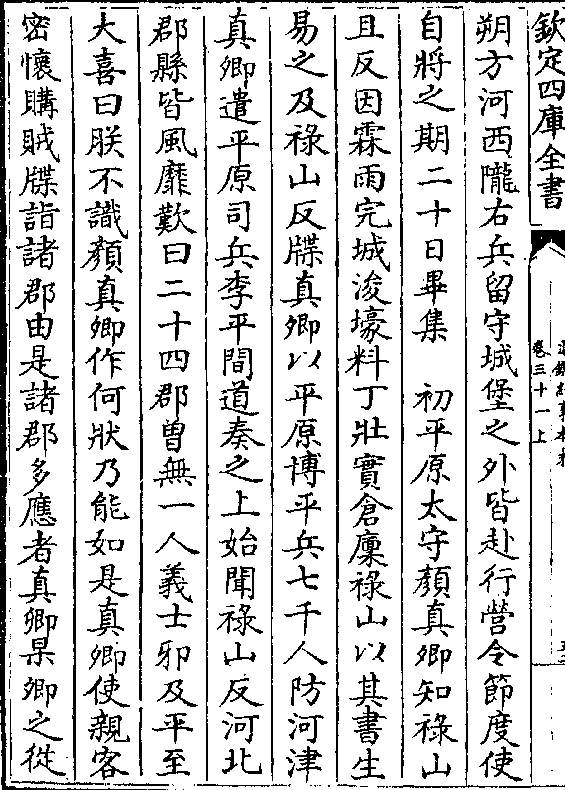 欽定四庫全書
卷三十一上
朔方河西隴右兵留守城堡之外皆赴行營令節度使
自將之期二十日畢集　初平原太守顏真卿知祿山
且反因霖雨完城浚壕料丁壯實倉廩祿山以其書生
易之及祿山反牒真卿以平原博平兵七千人防河津
真卿遣平原司兵李平間道奏之上始聞祿山反河北
郡縣皆風靡歎曰二十四郡曽無一人義士邪及平至
大喜曰朕不識顏真卿作何狀乃能如是真卿使親客
密懷購賊牒詣諸郡由是諸郡多應者真卿杲卿之從